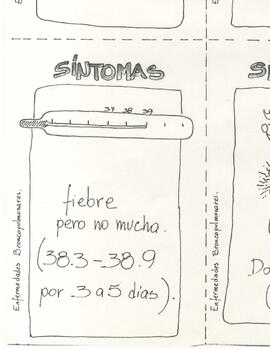 SÍNTOMAS
37 38 39
fiebre
pero no mucha.
(38.3-38.9
por 3 a 5 días).
Enfermedades Broncopulmonares.
Enfermedades Broncopulmonares.